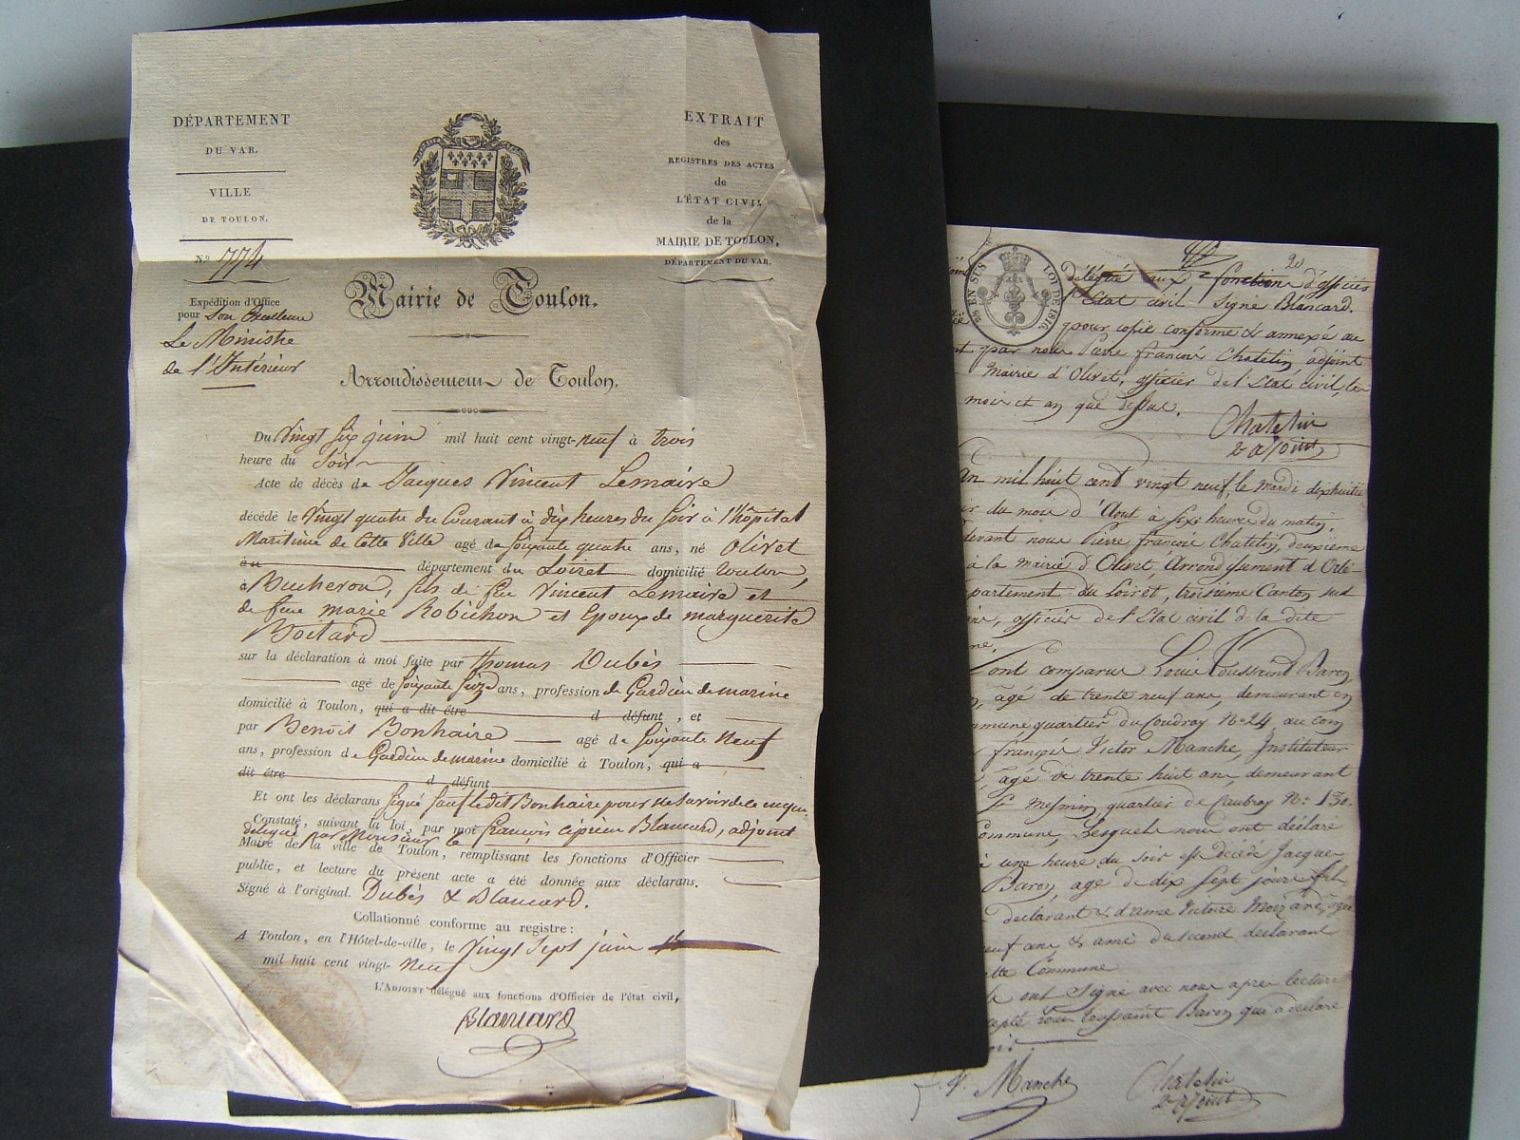 DÉPARTEMENT
DU VAR.
VILLE
DE TOULON.
N.º 774
Expédition d'Office
pour Son Excellence
Le Ministre
de l'Intérieur
EXTRAIT
des
REGISTRES DES ACTES
de
L'ÉTAT CIVIL
de la
MAIRIE DE TOULON,
DÉPARTEMENT DU VAR.
Mairie de Toulon.
Arrondissement de Toulon.
Du Vingt Six juin mil huit cent vingt-neuf à trois
heure du Soir
Acte de décès de Jacques Vincent Lemaire
décédé le Vingt quatre du Courant à dix heures du Soir à l'hôpital
Maritime de cette Ville agé de Soixante quatre ans, né Olivet
département du Loiret domicilié toulon,
Bucheron, fils de feu Vincent Lemaire et
de feue marie Robichon et Epoux de marguerite
Boitard
sur la déclaration à moi faite par thomas Dubès
agé de Soixante Seize ans, profession de Gardien de marine
domicilié à Toulon, qui a dit être d défunt, et
par Benoit Bonhaire agé de Soixante Neuf
ans, profession de Gardien de marine domicilié à Toulon, qui a
dit être d défunt
Et ont les déclarans Signé Sauf le dit Bonhaire pour ne Savoir de ce enquis
Constaté, suivant la loi, par moi françois ciprien Blancard, adjoint
délégué par Monsieur le
Maire de la ville de Toulon, remplissant les fonctions d'Officier
public, et lecture du présent acte a été donnée aux déclarans.
Signé à l'original. Dubès & Blancard.
Collationné conforme au registre:
A Toulon, en l'Hôtel-de-ville, le Vingt Sept juin
mil huit cent vingt-neuf
L'ADJOINT délégué aux fonctions d'Officier de l'état civil,
Blancard
20
EN SUS
LOI DE 1816
délégué aux fonctions d'officier
l'Etat civil Signé Blancard.
pour copie conforme & annexé au
par nous Pierre françois Chatelin, adjoint
Mairie d'Olivet, officier de l'Etat civil, les
mois et an que dessus.
Chatelin
2e adjoint
an mil huit cent vingt neuf, le mardi dixhuitie
du mois d'Aout à six heures du matin.
devant nous Pierre françois Chatelin, deuxième
à la mairie d'Olivet, Arrondissement d'Orlé-
partement du Loiret, troisième Canton sud
officier de l'Etat civil de la dite
Sont comparus Louis Toussaint Baron
âgé de trente neuf ans, demeurant en
mmune quartier du Coudray No 24, au con
françois Victor Manche, Instituteur
âgé de trente huit ans, demeurant
St mesmin quartier de Caubray No: 130.
Commune, Lesquels nous ont déclaré
à une heure du soir est décédé Jacques
Baron, age de dix sept jours fils
déclarant & d'ame Victoire Moizard, agée
euf ans & ami du second déclarant
tte Commune
ont Signé avec nous apres lecture
cepté Louis toussaint Baron qui a déclaré
oir.
f. V. Manche
Chatelin
2e adjoint